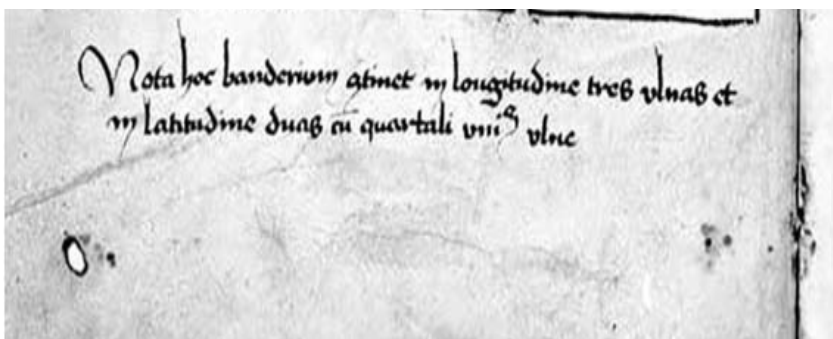 Nota hoc banderium ꝯtinet in longitudine tres vlnas et
in latitudine duas cū quartali vniꝰ vlne